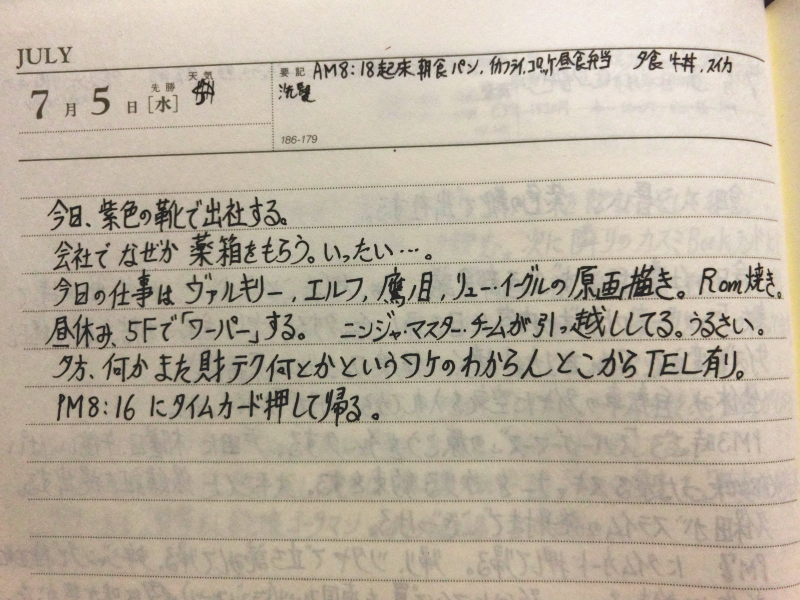 JULY
7月5日 先勝 [水] 天気
要記 AM8:18起床 朝食パン, イカフライ, コロッケ 昼食弁当 夕食 牛丼, スイカ
洗髪
186-179
今日、紫色の靴で出社する。
会社で なぜか 薬箱をもらう。いったい…。
今日の仕事は ヴァルキリー, エルフ, 鷹ノ目, リュー・イーグルの 原画描き。 Rom焼き。
昼休み、5Fで「ワーパー」する。 ニンジャ・マスター・チームが引っ越ししてる。うるさい。
夕方、何か また 財テク何とかというワケのわからんとこからTEL有り。
PM8:16 にタイムカード押して帰る。